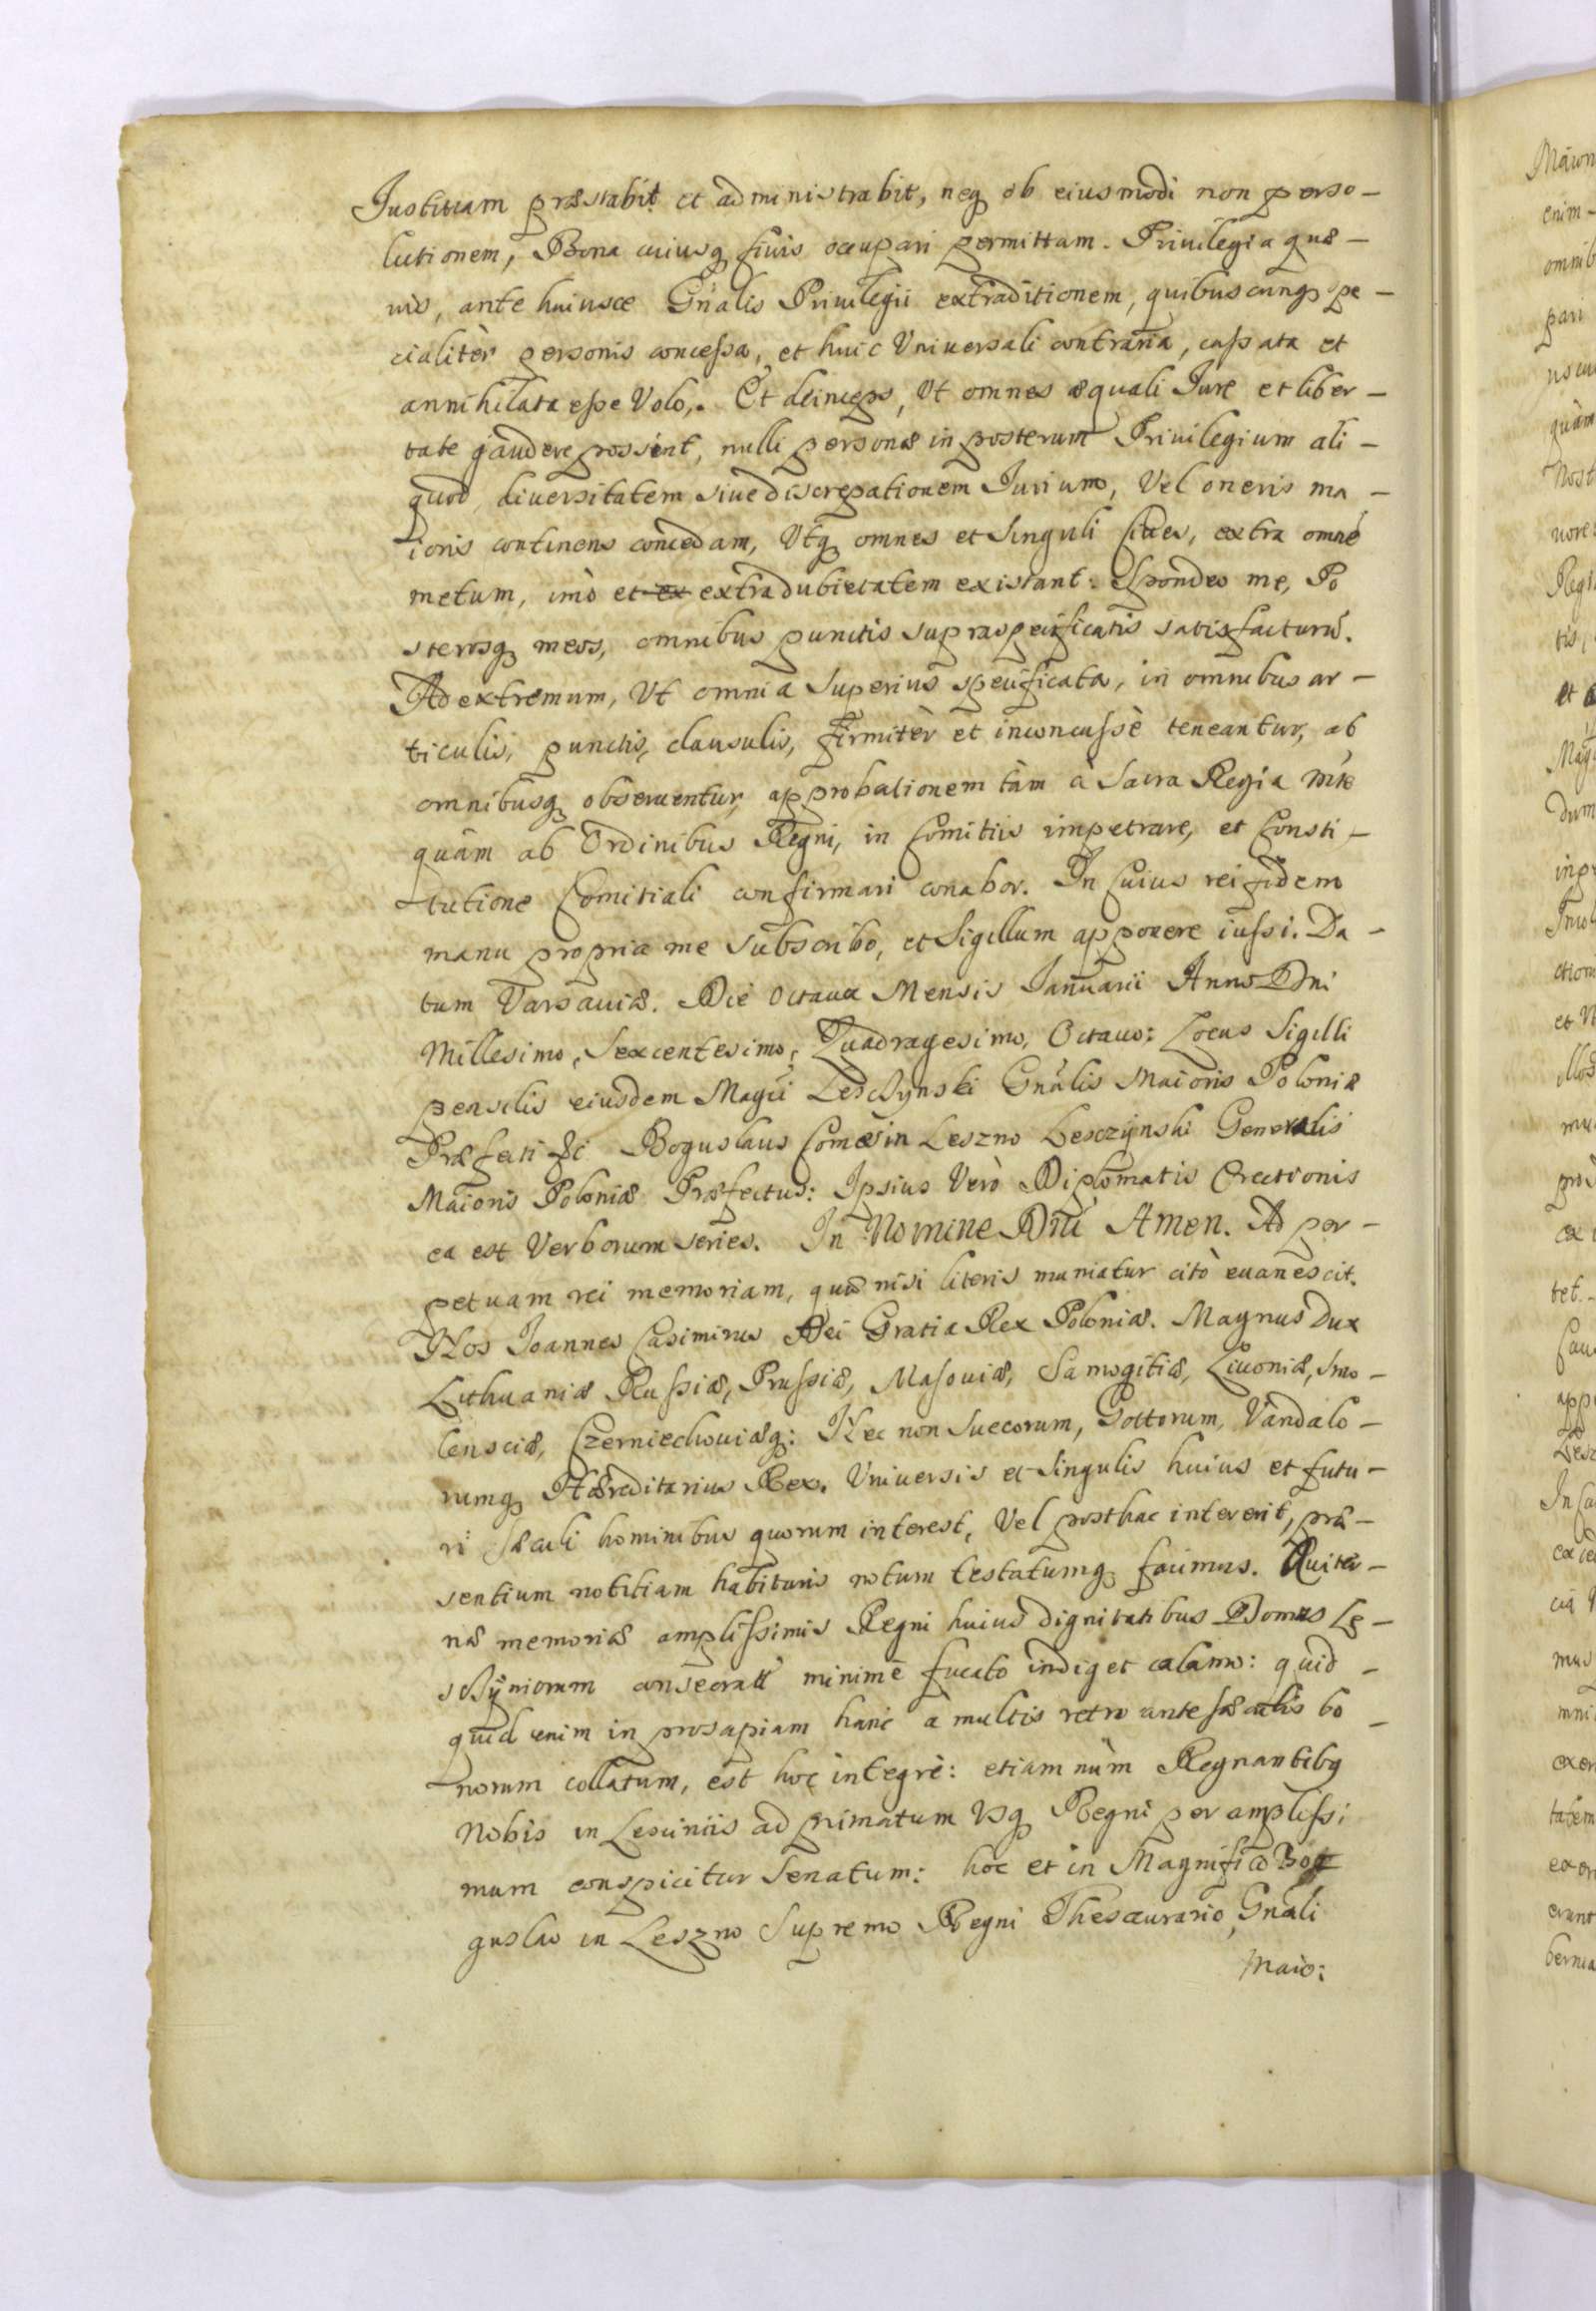 Justitiam præstabit et administrabit, neq₃ ob eiusmodi non perso-
lutionem, Bona cuiusq₃ Civis occupari permittam. Privilegia quæ-
uis, ante huiusce Gn̄alis Privilegii extraditionem, quibuscunq₃ spe-
cialitèr personis concessa, et huic Vniversali contraria, cassata et
annihilata esse Volo,. Et deinceps, Vt omnes æquali Jure et liber-
tate gaudere possint, nulli personæ in posterum Privilegium ali-
quod diversitatem siue discrepationem Jurium, Vel oneris ma-
ioris continens concedam, Vtq₃ omnes et Singuli Cives, extra omnē
metum, imò et ex extra dubietatem existant: Spondeo me, Po
sterosq₃ meos, omnibus punctis supraspecificatis satisfacturū.
Ad extremum, Vt omnia Superius specificata, in omnibus ar-
ticulis, punctis, clausulis, firmitèr et inconcussè teneantur, ab
omnibusq₃ obseruentur, approbationem tàm à Sacra Regia Mte
quàm ab Ordinibus Regni, in Comitiis impetrare, et Consti-
tutione Comitiali confirmari conabor. In Cuius rei fidem
manu propria me Subscribo, et Sigillum apponere iussi. Da-
tum Varsaviæ. Die Octava Mensis Januarii Anno Dni
Millesimo, Sexcentesimo, Quadragesimo, Octavo: Locus Sigilli
pensilis eiusdem Magci Lesczynski Gn̄alis Maioris Poloniæ
Præfecti &c Boguslaus Comes in Leszno Lesczÿnski Generalis
Maioris Poloniæ Præfectus: Ipsius Verò Diplomatis Erectionis
ea est Verborum series. In Nomine Dn̄i Amen. Ad per-
petuam rei memoriam, quæ nisi literis muniatur citò evanescit.
Nos Joannes Casimirus Dei Gratia Rex Poloniæ. Magnus Dux
Lithuaniæ Russiæ, Prussiæ, Masoviæ, Samogitiæ, Livoniæ, Smo-
lensciæ, Czerniechoviæq₃: Nec non Suecorum, Gottorum, Vandalo-
rumq₃ Hæreditarius Rex. Vniversis et Singulis huius et futu-
ri sæculi hominibus quorum interest, Vel posthac intererit, præ-
sentium notitiam habituris notum testatumq₃ facimus. Æuiter-
næ memoriæ amplissimis Regni huius dignitatibus Domus Le-
sczÿniorum consecratæ minimè fucato indiget calamo: quid-
quid enim in prosapiam hanc à multis retro ante sæculis bo-
norum collatum, est hoc integrè: etiam nùm Regnantibq₃
Nobis in Lesciniis ad primatum Vsq₃ Regni per amplissi
mum conspicitur Senatum: hoc et in Magnifico Bog
guslao in Leszno Supremo Regni Thesaurario, Gn̄ali
Maio: